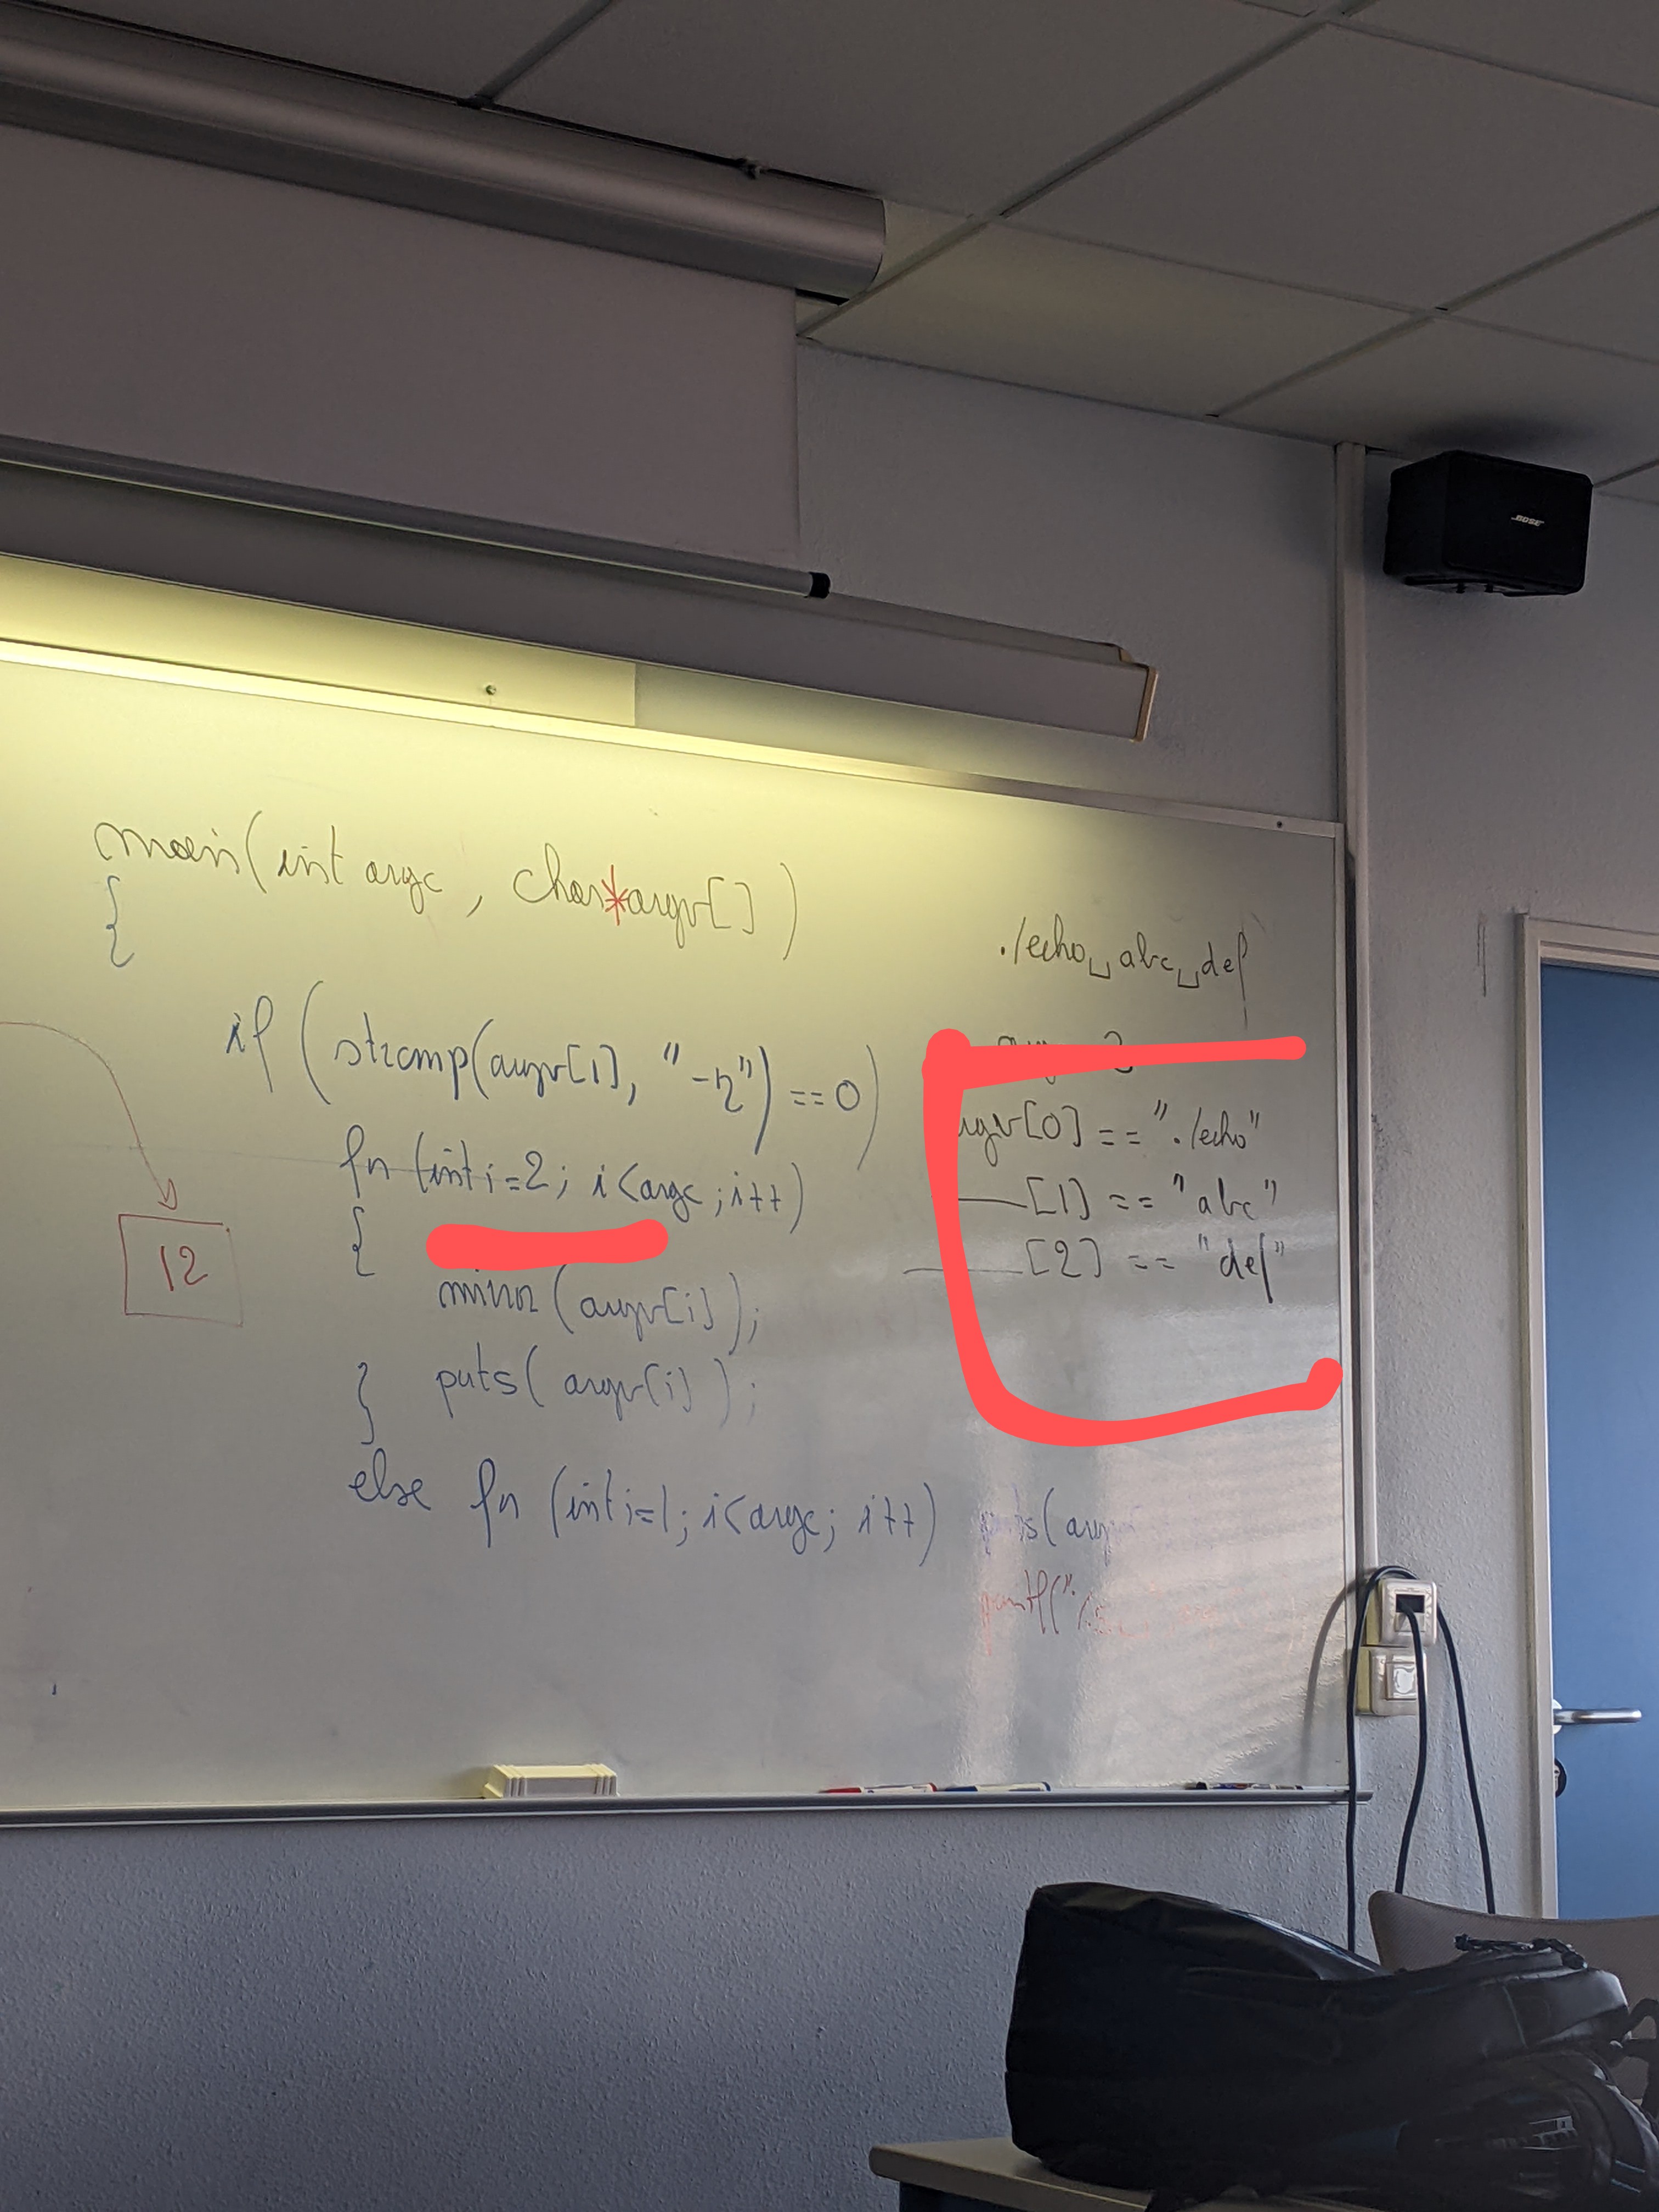 BOSE
main(int argc, char*argv[])
{
if (strcmp(argv[1], "-r") == 0)
for (int i=2; i<argc; i++)
{
miror (argv[i]);
puts( argv[i] );
}
else for (int i=1; i<argc; i++) puts(argv
printf("%s
12
./echo␣abc␣def
argv[0] == "./echo"
[1] == "abc"
[2] == "def"